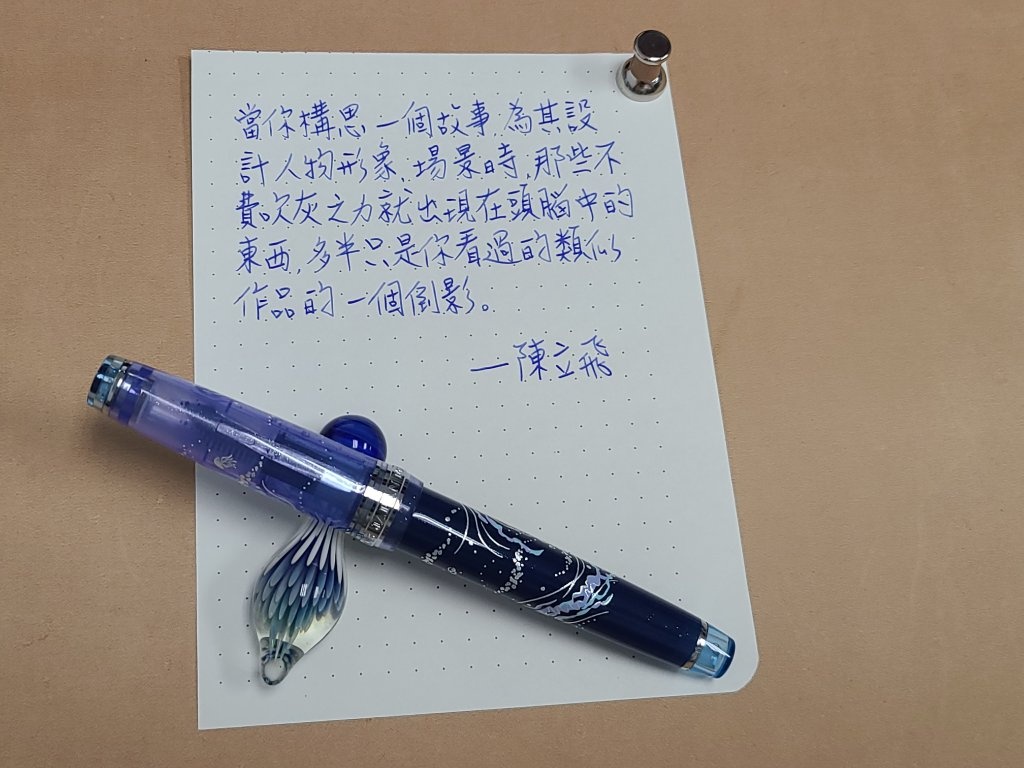 當你構思一個故事,為其設
計人物形象、場景時,那些不
費吹灰之力就出現在頭腦中的
東西,多半只是你看過的類似
作品的一個倒影。
—陳立飛